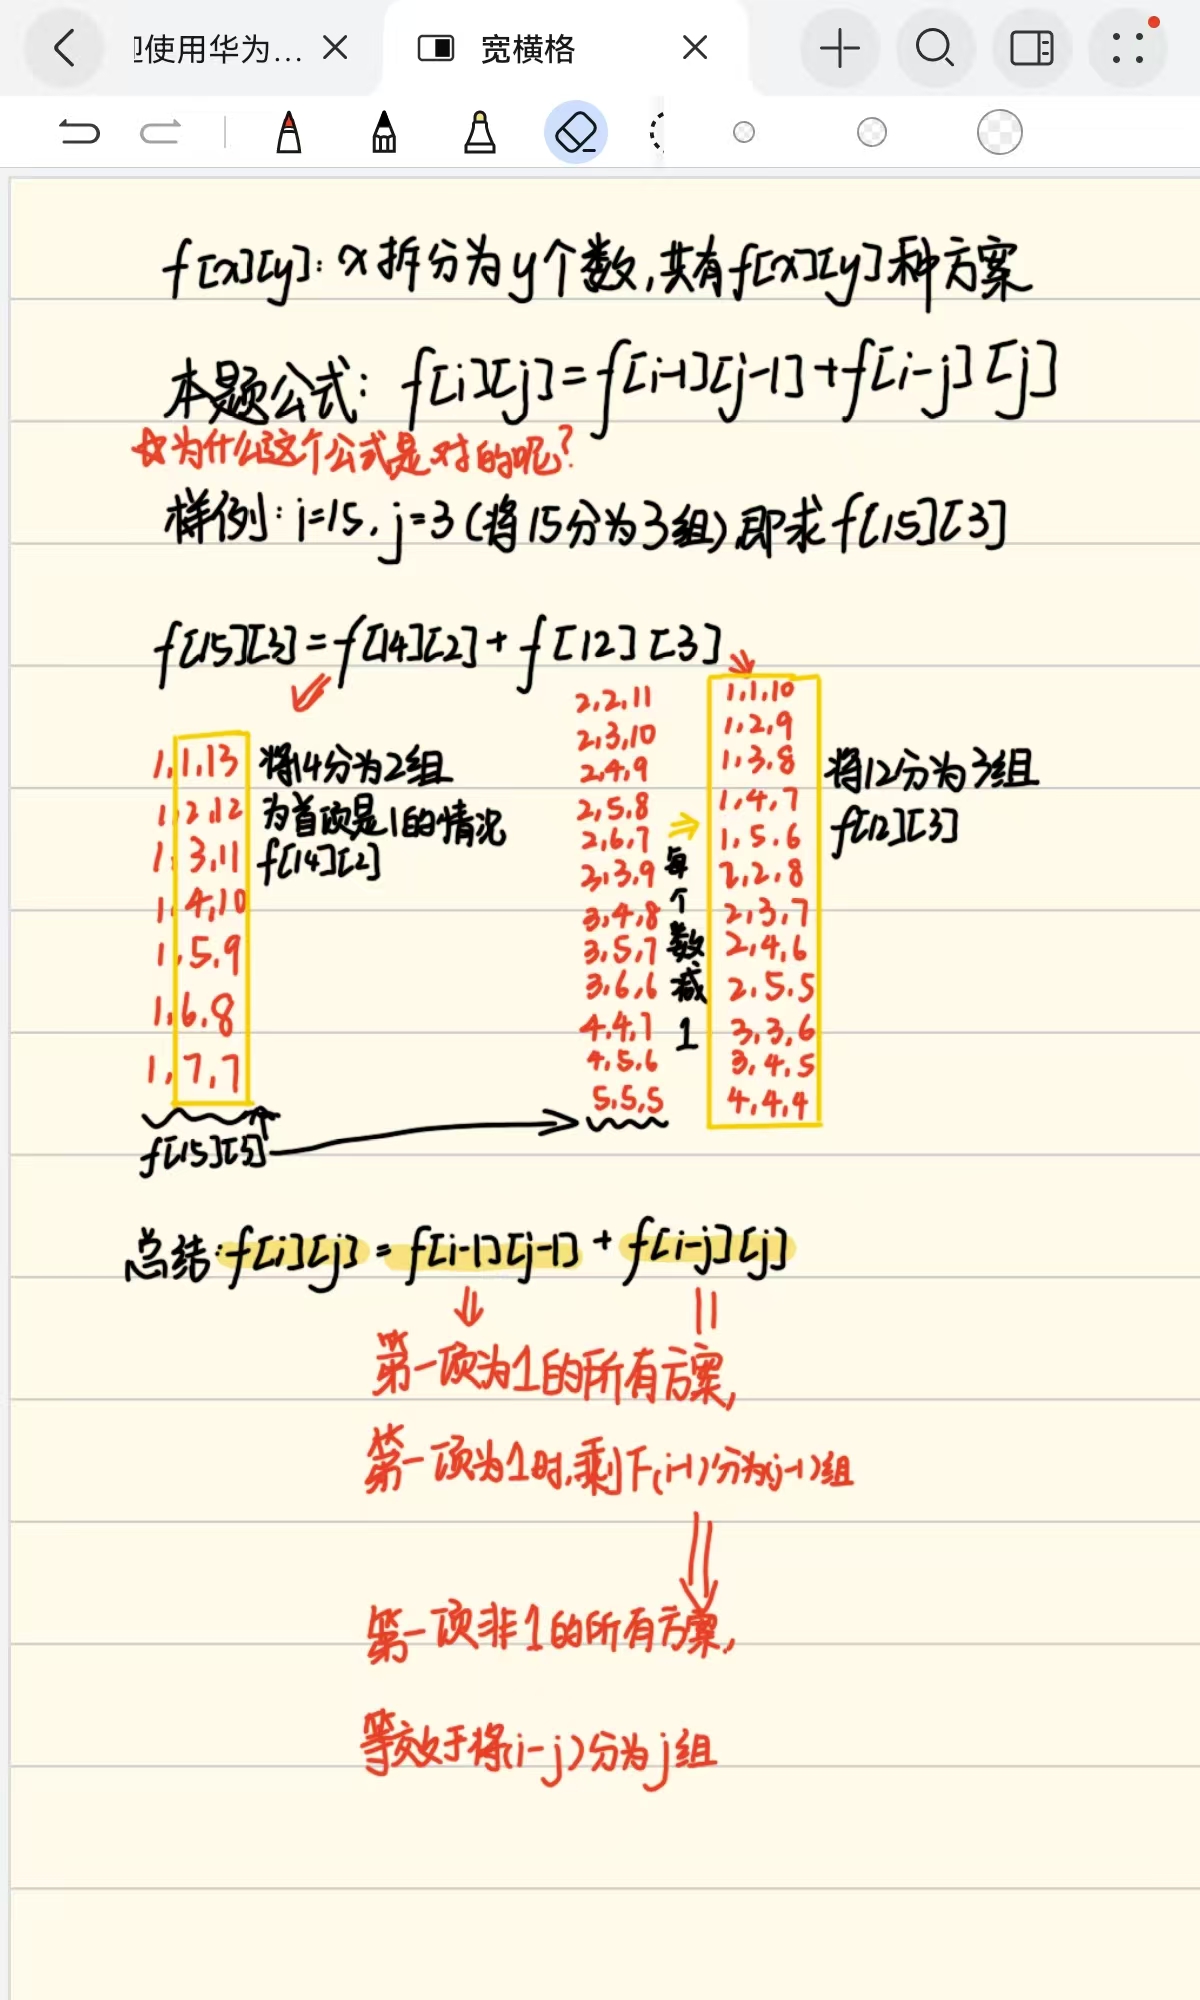 迎使用华为...
宽横格
f[x][y]: x拆分为y个数,共有f[x][y]种方案
本题公式: f[i][j]=f[i-1][j-1]+f[i-j][j]
☆为什么这个公式是对的呢?
样例: i=15, j=3(将15分为3组),即求f[15][3]
f[15][3]=f[14][2]+f[12][3]
1,1,13
1,2,12
1,3,11
1,4,10
1,5,9
1,6,8
1,7,7
将14分为2组
为首项是1的情况
f[14][2]
2,2,11
2,3,10
2,4,9
2,5,8
2,6,7
3,3,9
3,4,8
3,5,7
3,6,6
4,4,7
4,5,6
5,5,5
每个数减1
1,1,10
1,2,9
1,3,8
1,4,7
1,5,6
2,2,8
2,3,7
2,4,6
2,5,5
3,3,6
3,4,5
4,4,4
将12分为3组
f[12][3]
f[15][3]
总结: f[i][j] = f[i-1][j-1] + f[i-j][j]
第一项为1的所有方案,
第一项为1时,剩下(i-1)分为(j-1)组
第一项非1的所有方案,
等效于将(i-j)分为j组